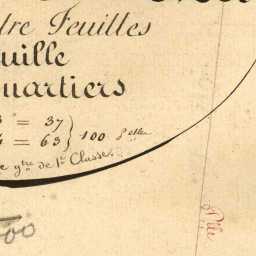 tre Feuilles
uille
uartiers
3 = 37
4 = 63 } 100 p.elles
e g.tre de 1.re Classe.
Pile
00